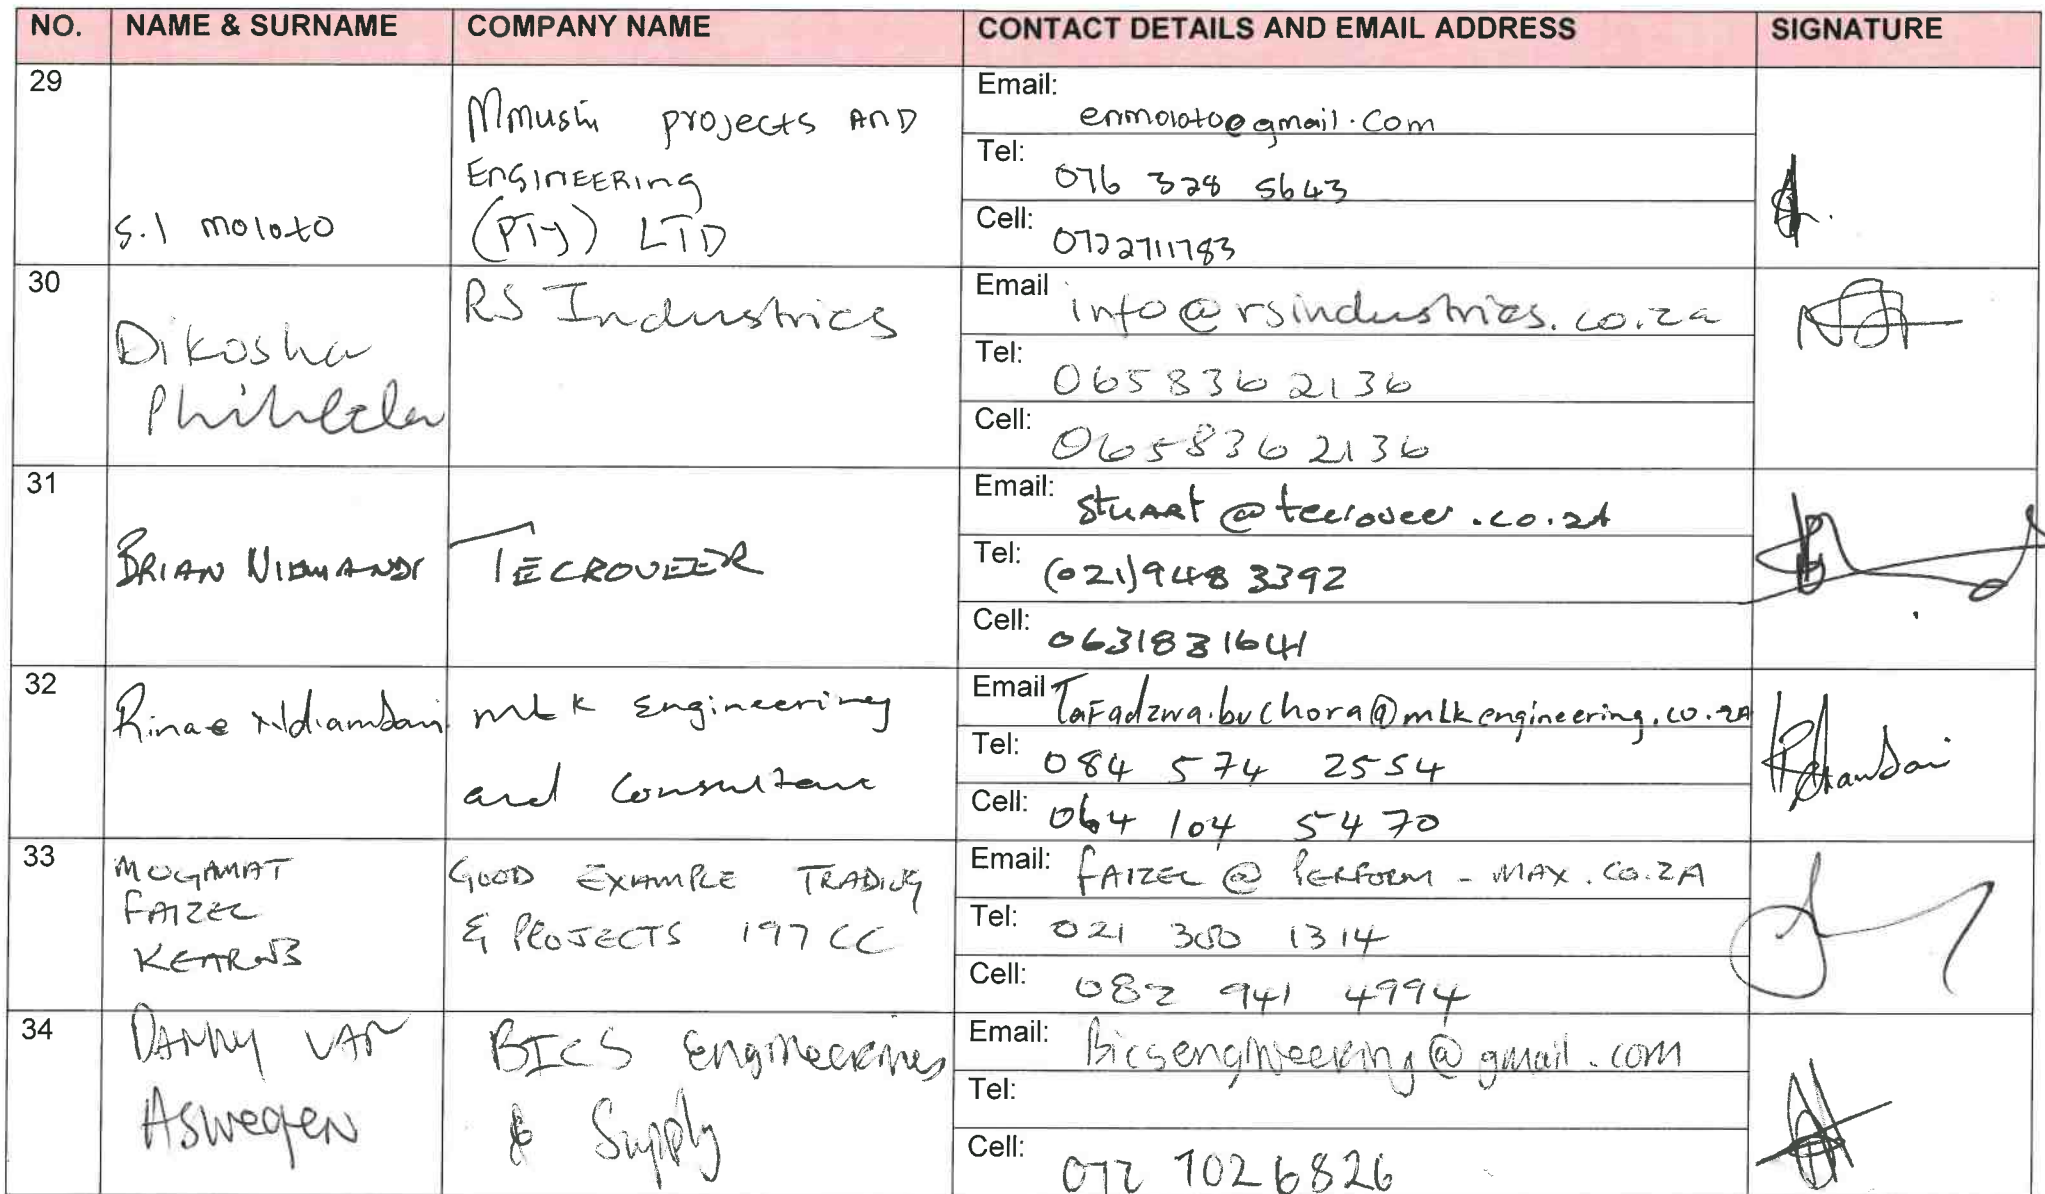 NO. NAME & SURNAME COMPANY NAME CONTACT DETAILS AND EMAIL ADDRESS SIGNATURE
29
S.I moloto
Mmushi projects AND
ENGINEERING
(PTY) LTD
Email: enmoloto@gmail.com
Tel: 076 328 5643
Cell: 0722711783
30
Dikosha
RS Industries
Email info@rsindustries.co.za
Tel: 065 836 2136
Cell: 065 836 2136
31
BRIAN NIEMANDT
TECROVEER
Email: stuart@tecroveer.co.za
Tel: (021) 948 3392
Cell: 0631831641
32
Rinae Ndiambani
MLK Engineering
and Consultant
Email Tafadzwa.buchora@mlkengineering.co.za
Tel: 084 574 2554
Cell: 064 104 5470
33
MOGAMAT
FAIZEL
KEARNS
GOOD EXAMPLE TRADING
& PROJECTS 197 CC
Email: FAIZEL @ PERFORM-MAX.CO.ZA
Tel: 021 300 1314
Cell: 082 941 4994
34
DANNY VAN
ASWEGEN
BICS Engineering
& Supply
Email: Bicsengineering@gmail.com
Tel:
Cell: 072 702 6826